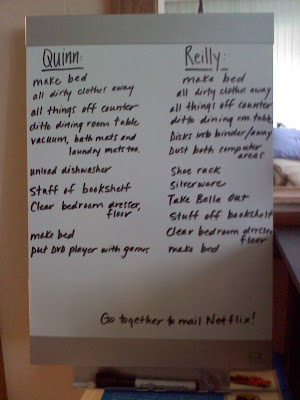 Quinn:
make bed
all dirty clothes away
all things off counter
ditto dining room table
vacuum, bath mats and
laundry mats too.
unload dishwasher
Staff of bookshelf
Clear bedroom dresser,
floor
make bed
put DVD player with games
Reilly:
make bed
all dirty clothes away
all things off counter
ditto dining rm table
Disks into binder/away
Dust both computer
areas
Shoe rack
silverware
Take Bella Out
Stuff off bookshelf
Clear bedroom dresser,
floor
make bed
Go together to mail Netflix!